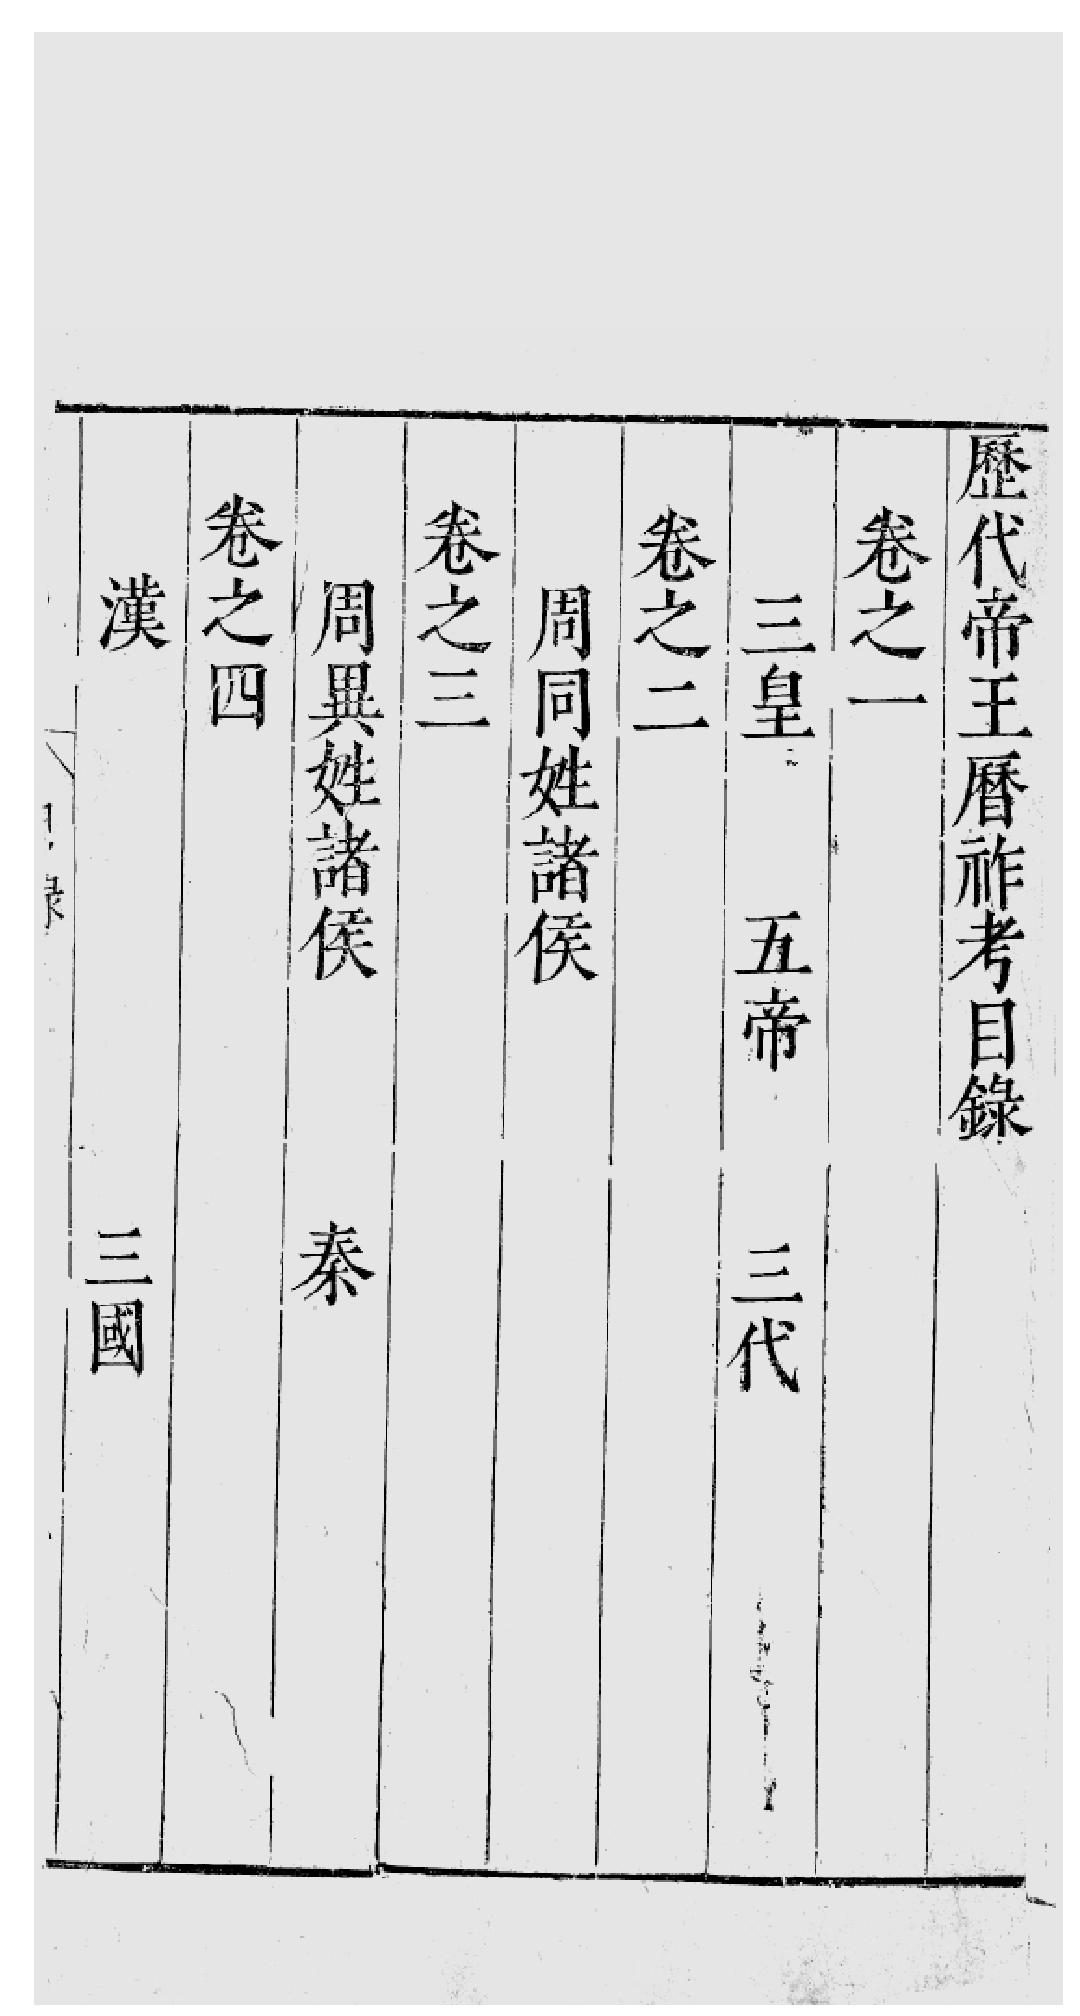 歷代帝王曆祚考目錄
卷之一
三皇　五帝　三代
卷之二
周同姓諸侯
卷之三
周異姓諸侯　秦
卷之四
漢　三國